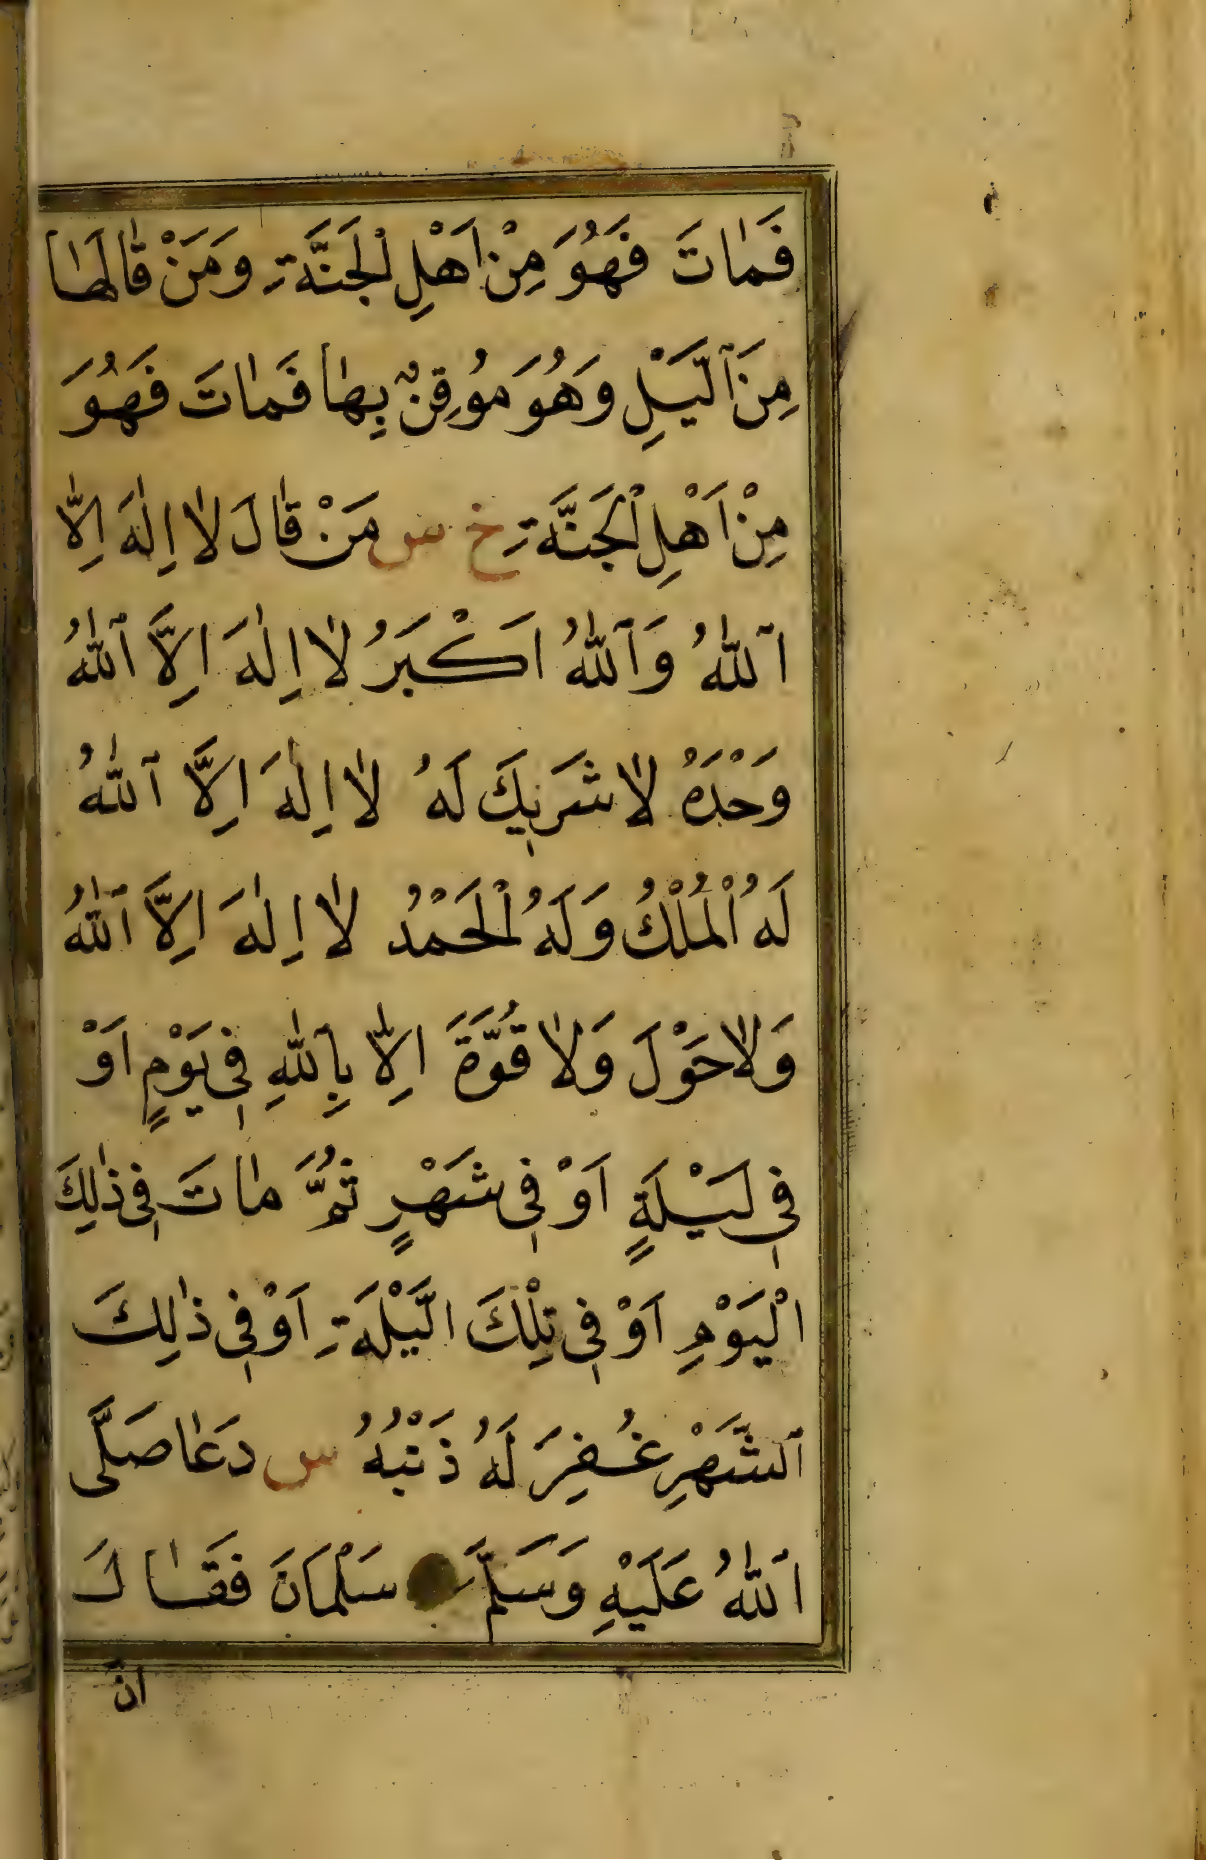 فَمٰاتَ فَهُوَ مِنْ اَهْلِ الْجَنَّةِ وَمَنْ قٰالَهٰا
مِنَ ٱلَّيْلِ وَهُوَ مُوقِنٌ بِهٰا فَمٰاتَ فَهُوَ
مِنْ اَهْلِ الْجَنَّةِ خ س مَنْ قٰالَ لٰا اِلٰهَ اِلّٰا
ٱللّٰهُ وَٱللّٰهُ اَكْبَرُ لٰا اِلٰهَ اِلَّا ٱللّٰهُ
وَحْدَهُ لٰا شَرِيكَ لَهُ لٰا اِلٰهَ اِلَّا ٱللّٰهُ
لَهُ الْمُلْكُ وَلَهُ الْحَمْدُ لٰا اِلٰهَ اِلَّا ٱللّٰهُ
وَلٰا حَوْلَ وَلٰا قُوَّةَ اِلّٰا بِٱللّٰهِ فِى يَوْمٍ اَوْ
فِى لَيْلَةٍ اَوْ فِى شَهْرٍ ثُمَّ مٰاتَ فِى ذٰلِكَ
الْيَوْمِ اَوْ فِى تِلْكَ الَّيْلَةِ اَوْ فِى ذٰلِكَ
ٱلشَّهْرِ غُفِرَ لَهُ ذَنْبُهُ س دَعٰا صَلَّى
ٱللّٰهُ عَلَيْهِ وَسَلَّمَ سَلْمَانَ فَقَالَ
انّ